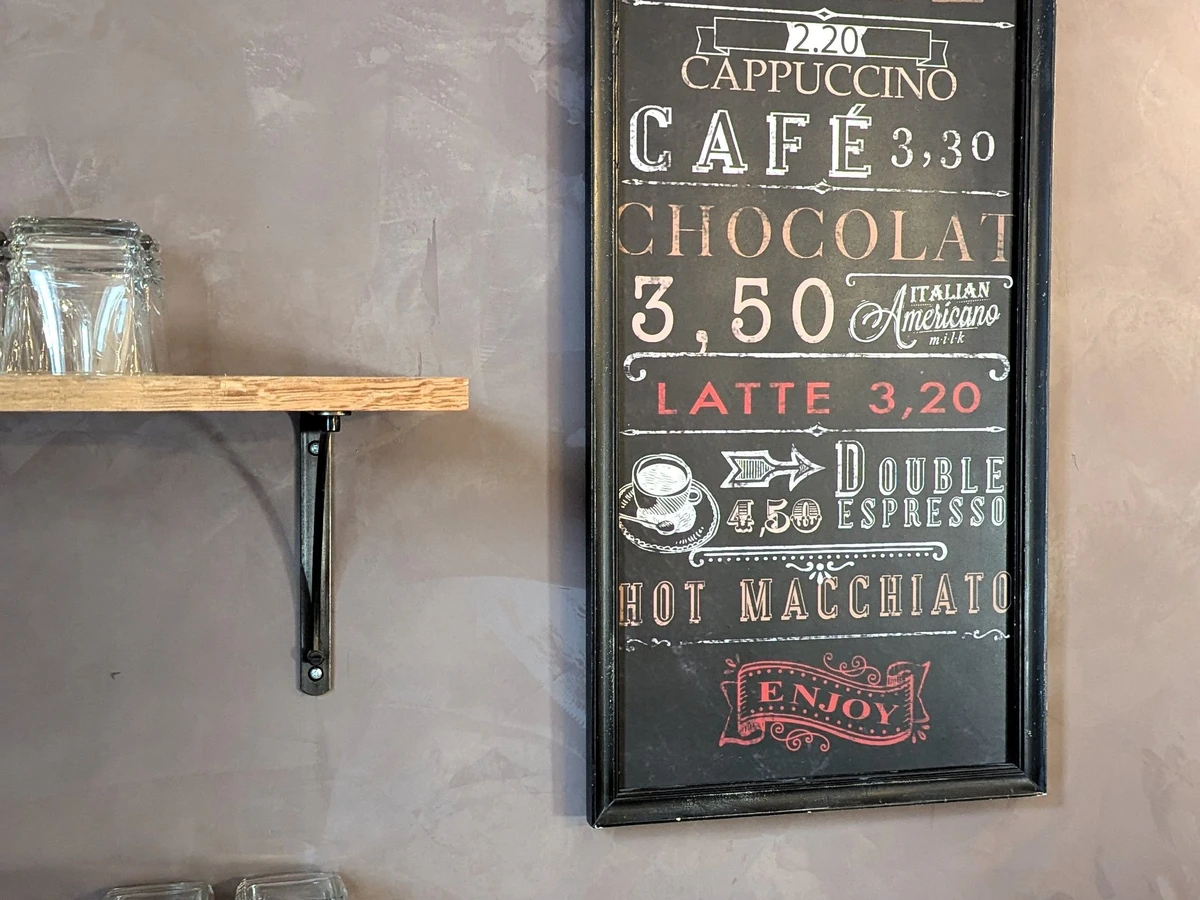 2.20
CAPPUCCINO
CAFÉ 3,30
CHOCOLAT
3,50
ITALIAN
Americano
milk
LATTE 3,20
DOUBLE
4,50 ESPRESSO
HOT MACCHIATO
ENJOY